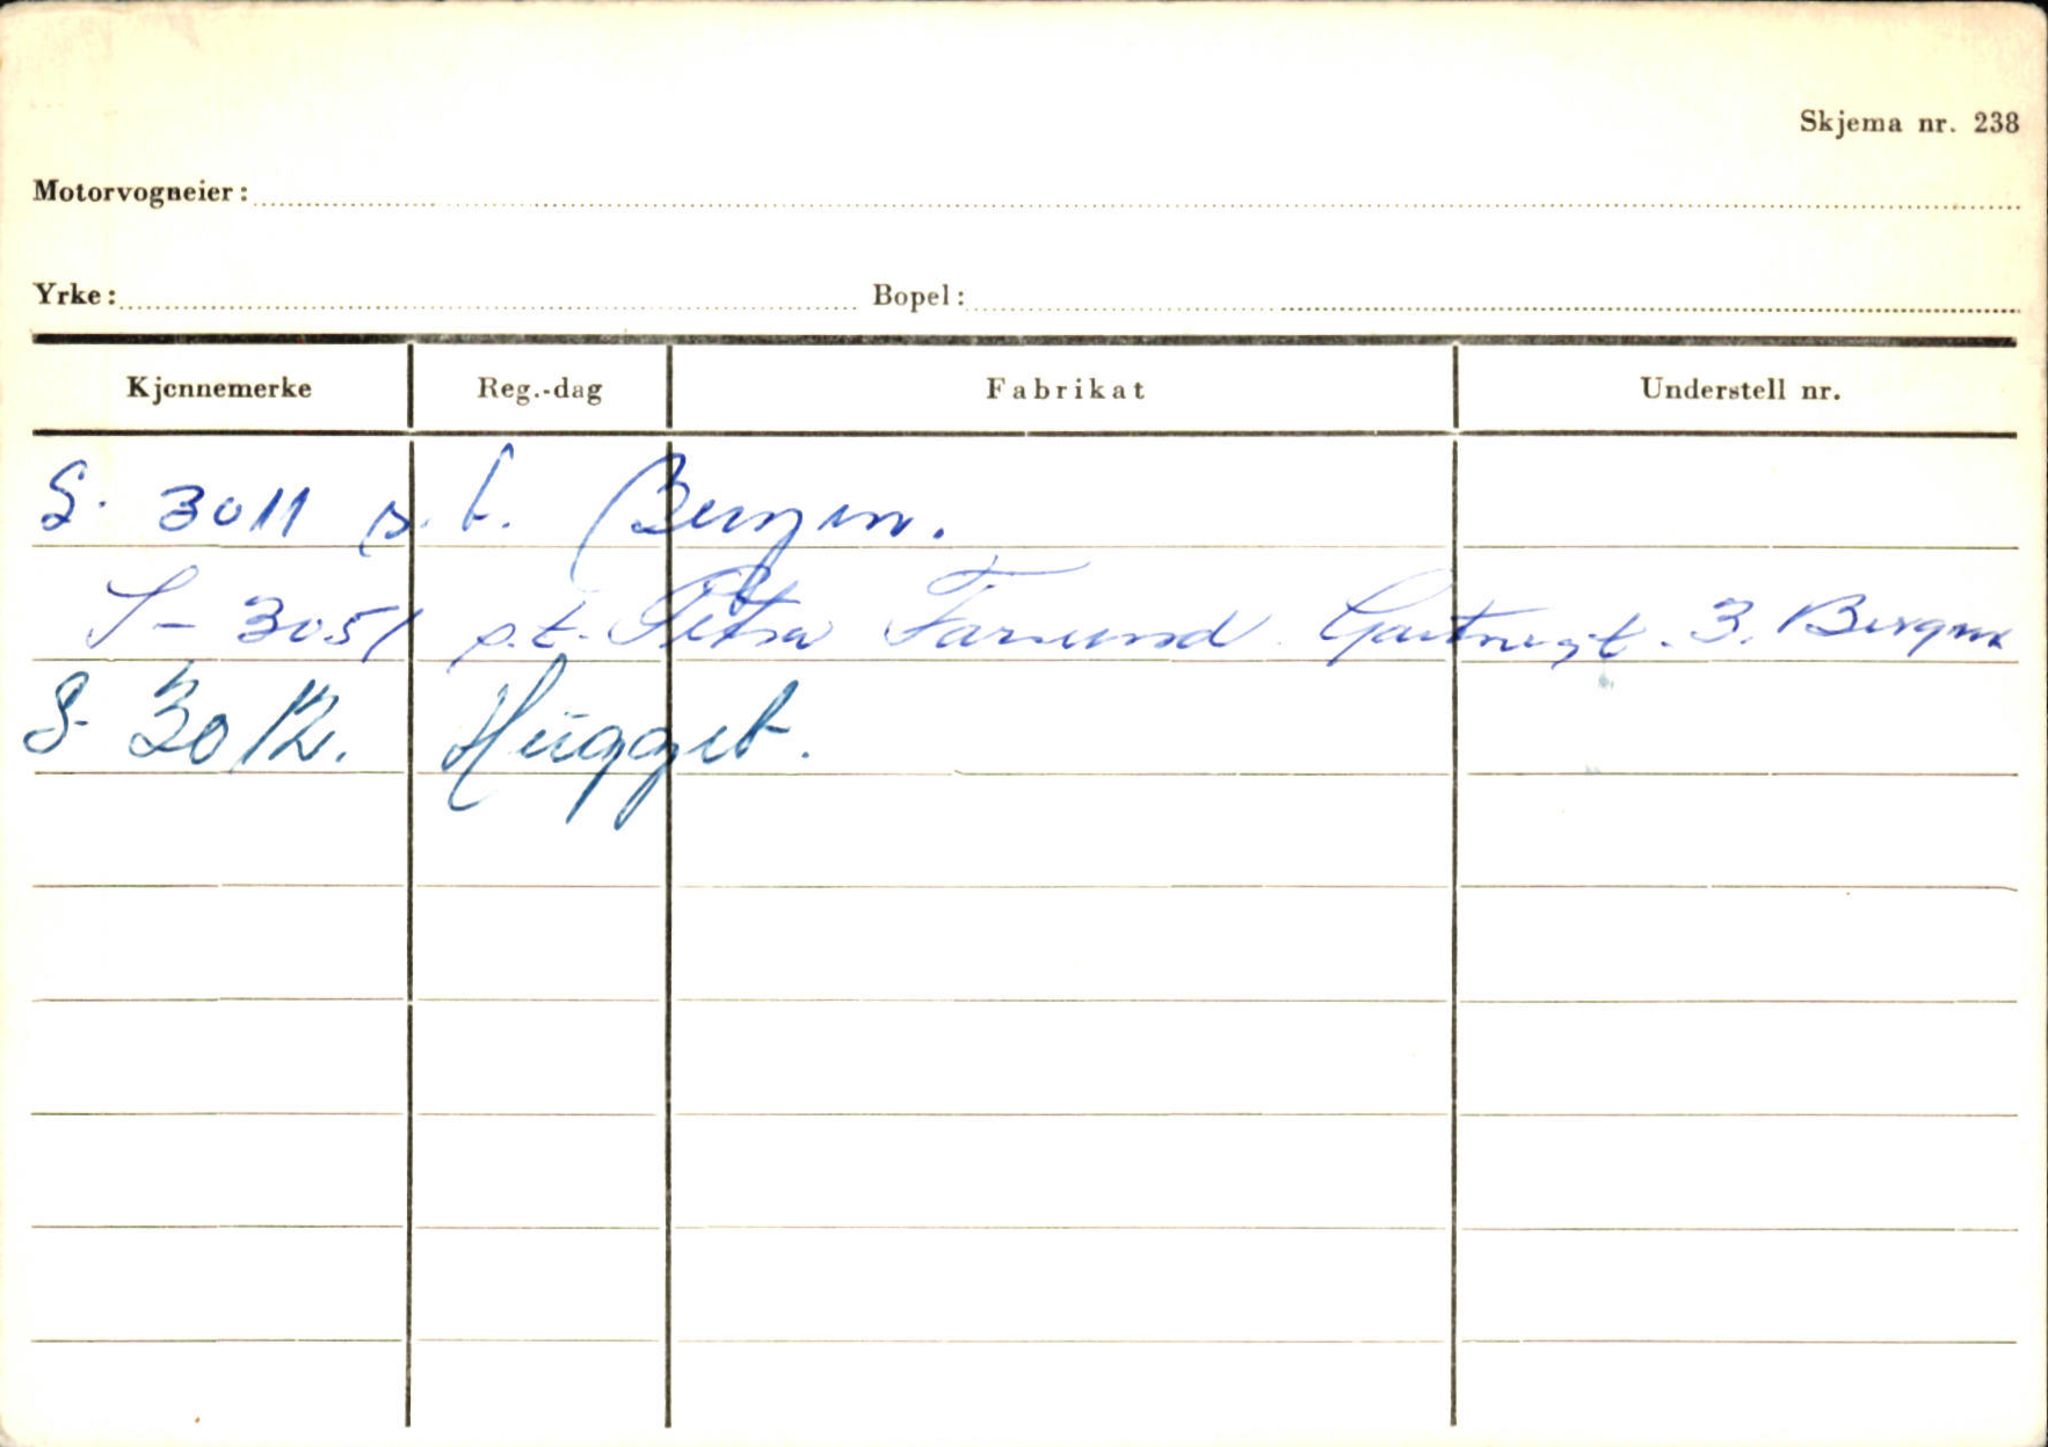 Skjema nr. 238
Motorvogneier:
Yrke: Bopel:
Kjennemerke Reg.-dag Fabrikat Understell nr.
S. 3011 p.t. Bergen.
S-3051 p.t. Petra Farsund Gartnergt. 3. Bergen
S- 3012. Hugget.